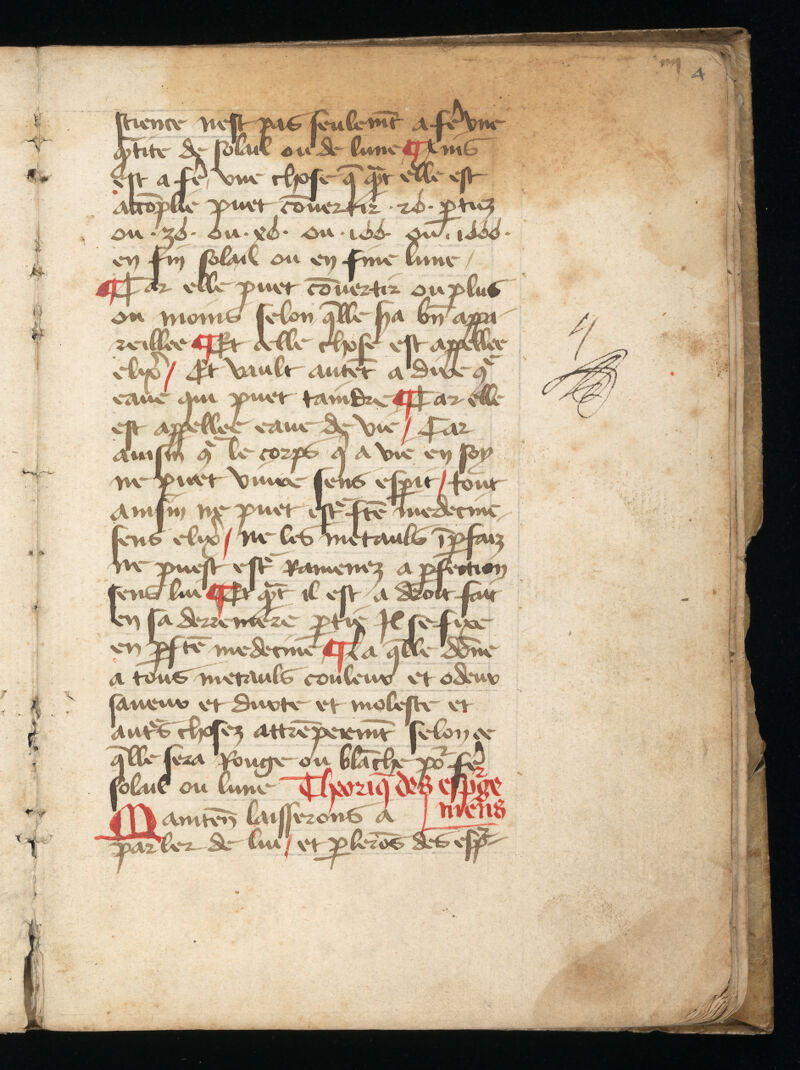 4
science nest pas seulemēt a fē vne
q̄tite de solail ou de lune ¶ Ains
est a fē vne chose q̄ q̄t elle est
acōplie puet cōuertir · 20 · ptiez
ou · 30 · ou · X0 · ou · 100 · ou · 1000 ·
en fin solail ou en fine lune /
¶ Car elle puet cōuertir ou plus
ou moins selon q̄lle ha bn̄ appa
reillee ¶ Et celle chose est appellee
elix̄ / Et vault autēt a dire q̄
eaue qui puet taindre ¶ Car elle
est appellee eaue de vie / Car
ainsin q̄ le corps q̄ a vie en soy
ne puet viure sens esperit / tout
ainsin ne puet est̄ fc̄e medecine
sens elix̄ / ne les metauls īperfaiz
ne puest est̄ Ramenez a perfection
sens lui ¶ Et q̄t il est a droit fait
en sa derreniere ptie Il se fixe
en perfc̄e medecine ¶ La q̄lle dōne
a tous metauls couleur et odeur
saueur et durte et moleste et
aut̄s chosez attrēpeemēt selon ce
q̄lle sera Rouge ou blāche por fē
solail ou lune Theoriq̄ des esp̄ge
mens
Mainten̄ laisserons a
parler de lui / et plerōs des esp̄-